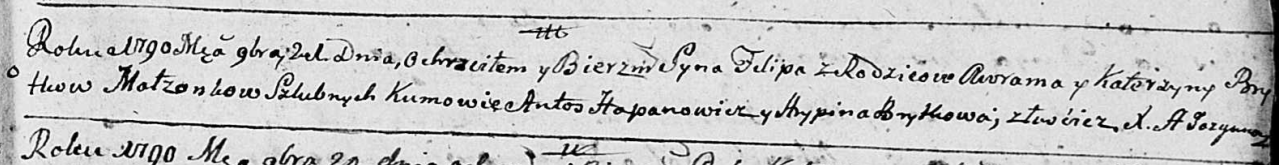 Roku 1790 Męa 9bra, 21. Dnia, ochrzciłem y Bierzm Syna Felipa z Rodzicow Awrama y Katerzyny Bry
tkow Małzonkow Szlubnych Kumowie Antos Hapanowicz y Hrypina Brytkowa, z
Roku 1790 Męa 9bra